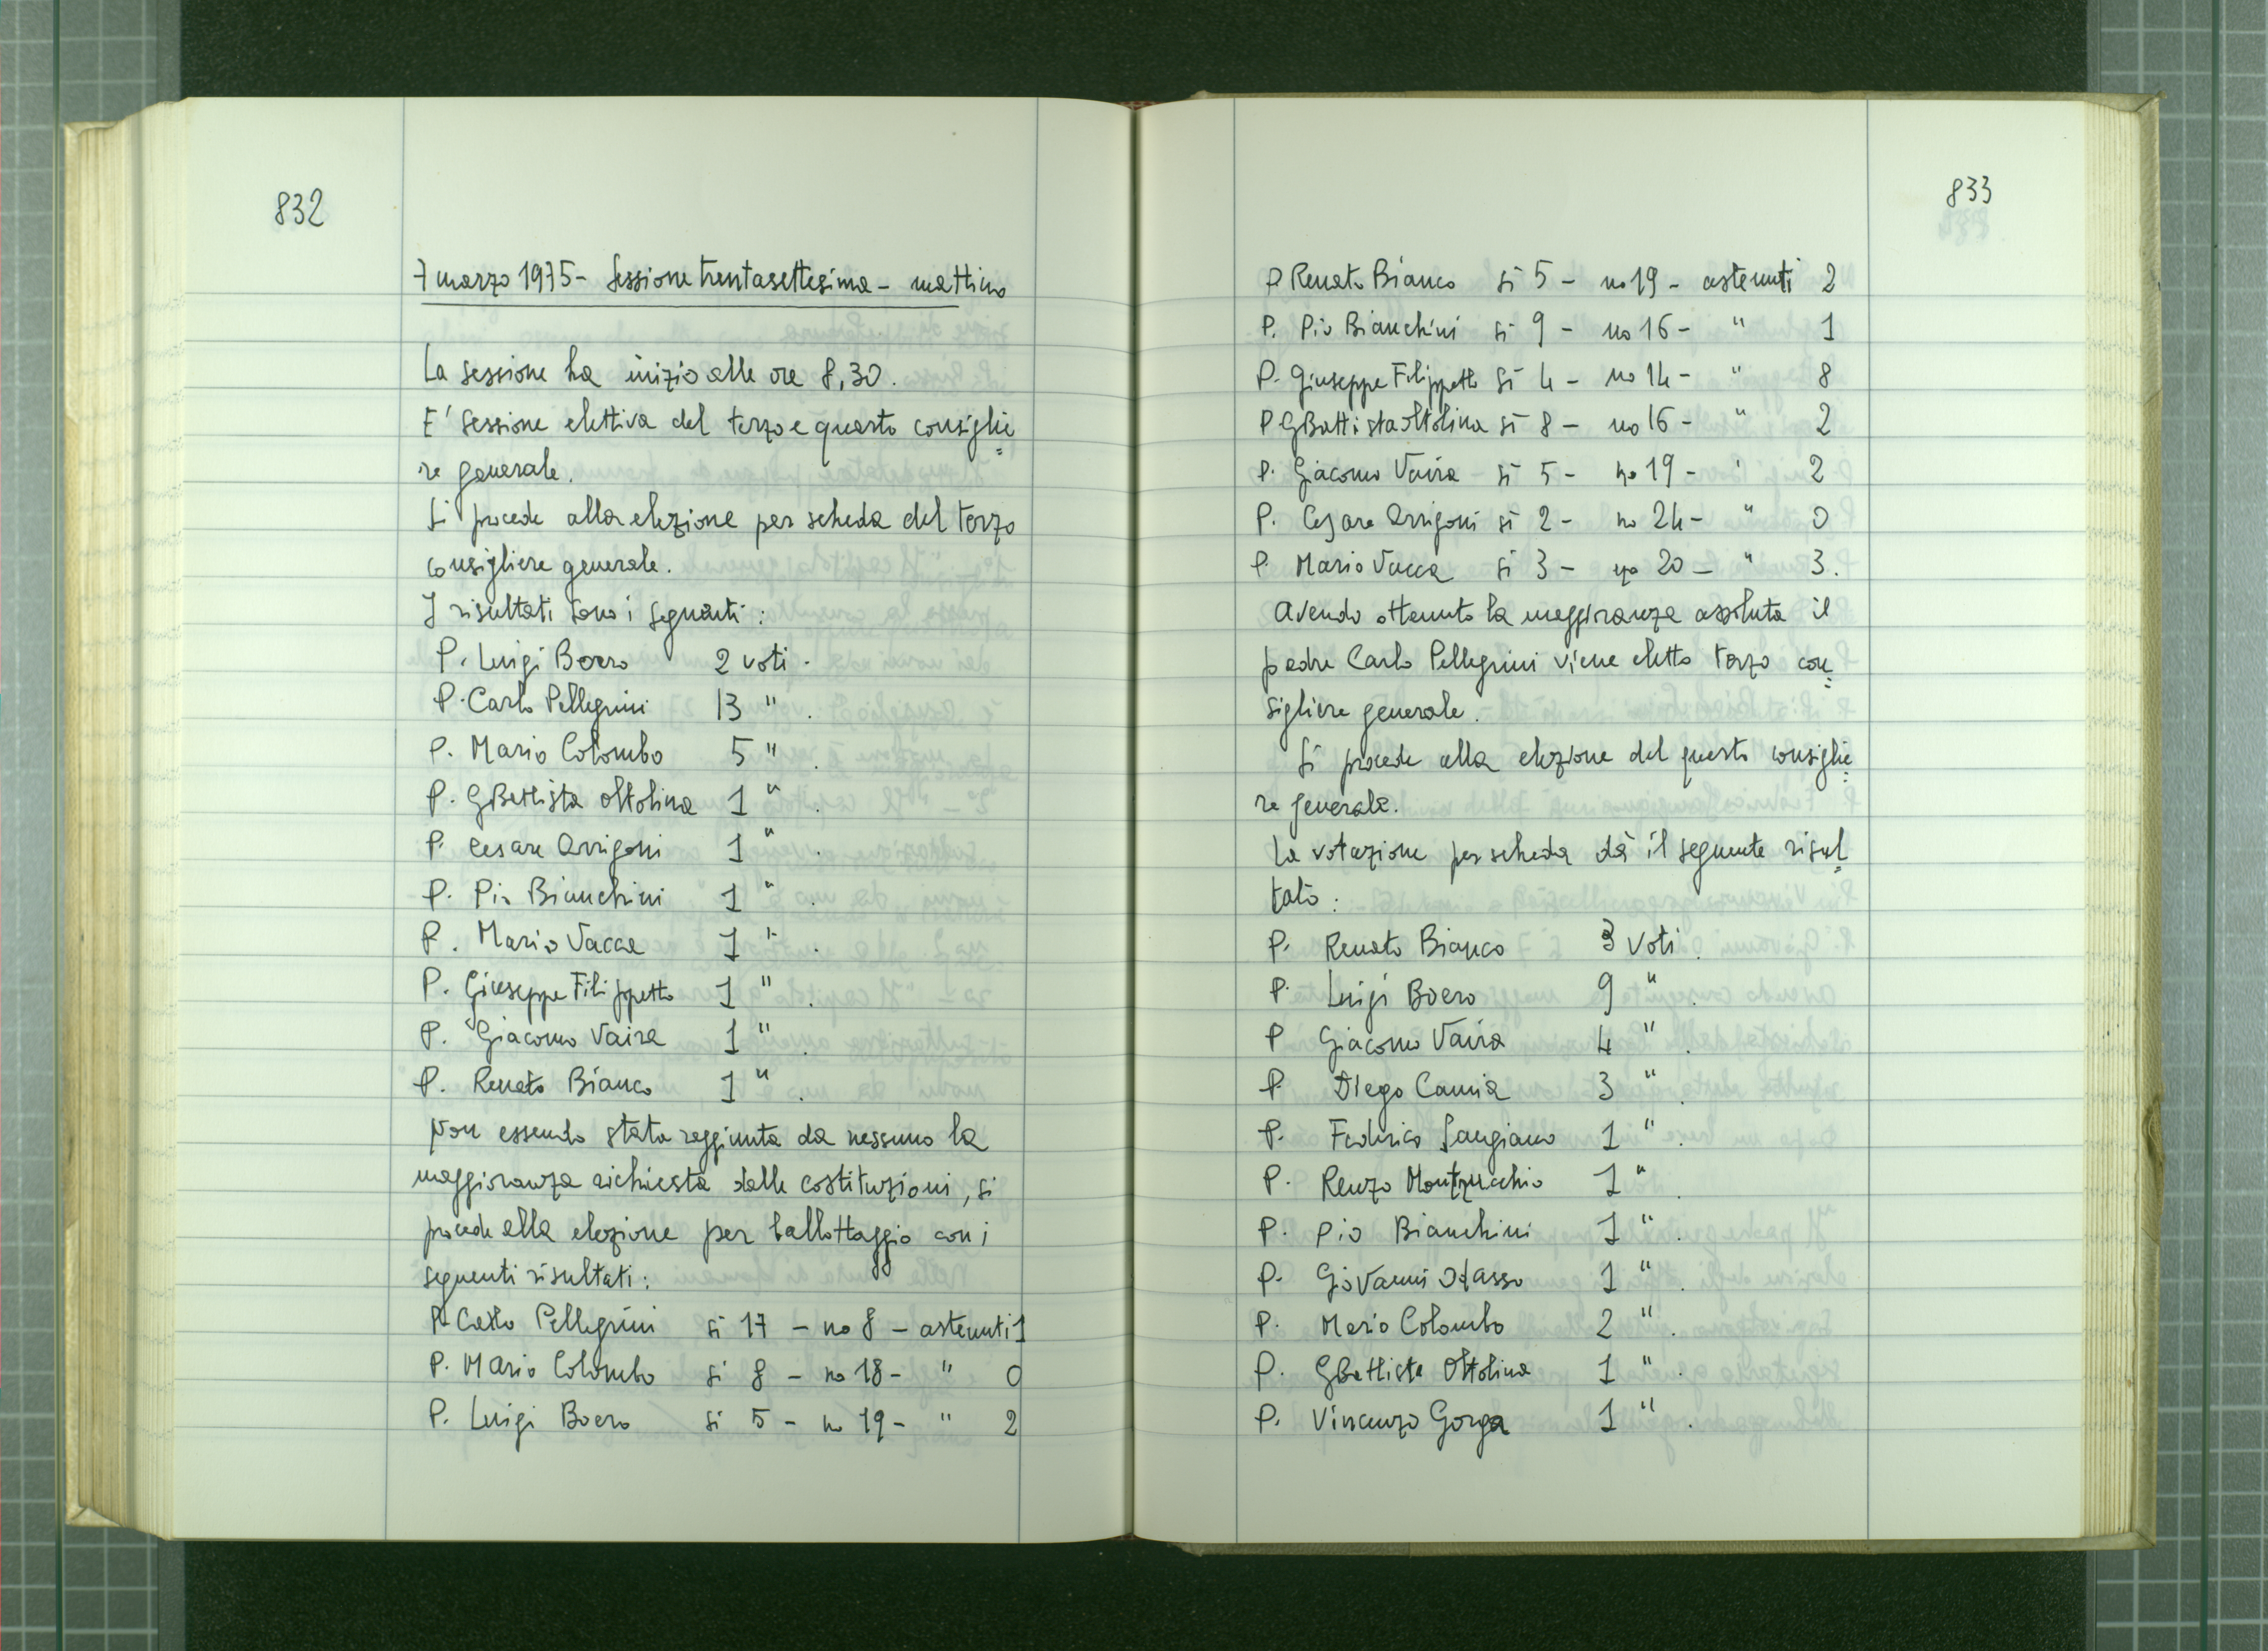 832
7 marzo 1975 - Sessione trentasettesima - mattino
La sessione ha inizio alle ore 8,30.
E' sessione elettiva del terzo e quarto consiglie
re generale.
Si procede alla elezione per scheda del terzo
consigliere generale.
I risultati sono i seguenti:
P. Luigi Boero 2 voti.
P. Carlo Pellegrini 13 " .
P. Mario Colombo 5 " .
P. GBattista Oltolina 1 " .
P. Cesare Arrigoni 1 " .
P. Pio Bianchini 1 " .
P. Mario Vacca 1 " .
P. Giuseppe Filippetto 1 " .
P. Giacomo Vaira 1 " .
P. Renato Bianco 1 " .
Non essendo stata raggiunta da nessuno la
maggioranza richiesta dalle costituzioni, si
procede alla elezione per ballottaggio con i
seguenti risultati:
P. Carlo Pellegrini si 17 - no 8 - astenuti 1
P. Mario Colombo si 8 - no 18 - " 0
P. Luigi Boero si 5 - no 19 - " 2
833
P Renato Bianco si 5 - no 19 - astenuti 2
P. Pio Bianchini si 9 - no 16 - " 1
P. Giuseppe Filippetto si 4 - no 14 - " 8
P GBattista Oltolina si 8 - no 16 - " 2
P. Giacomo Vaira si 5 - no 19 - ' 2
P. Cesare Arrigoni si 2 - no 24 - " 0
P. Mario Vacca si 3 - no 20 - " 3.
Avendo ottenuto la maggioranza assoluta il
padre Carlo Pellegrini viene eletto terzo con
sigliere generale.
Si procede alla elezione del quarto consiglie
re generale.
La votazione per scheda dà il seguente risul
tato:
P. Renato Bianco 3 voti.
P. Luigi Boero 9 " .
P Giacomo Vaira 4 " .
P. Diego Camia 3 " .
P. Federico Sangiano 1 " .
P. Renzo Montrucchio 1 " .
P. Pio Bianchini 1 " .
P. Giovanni Odasso 1 " .
P. Mario Colombo 2 " .
P. GBattista Oltolina 1 " .
P. Vincenzo Gorga 1 " .